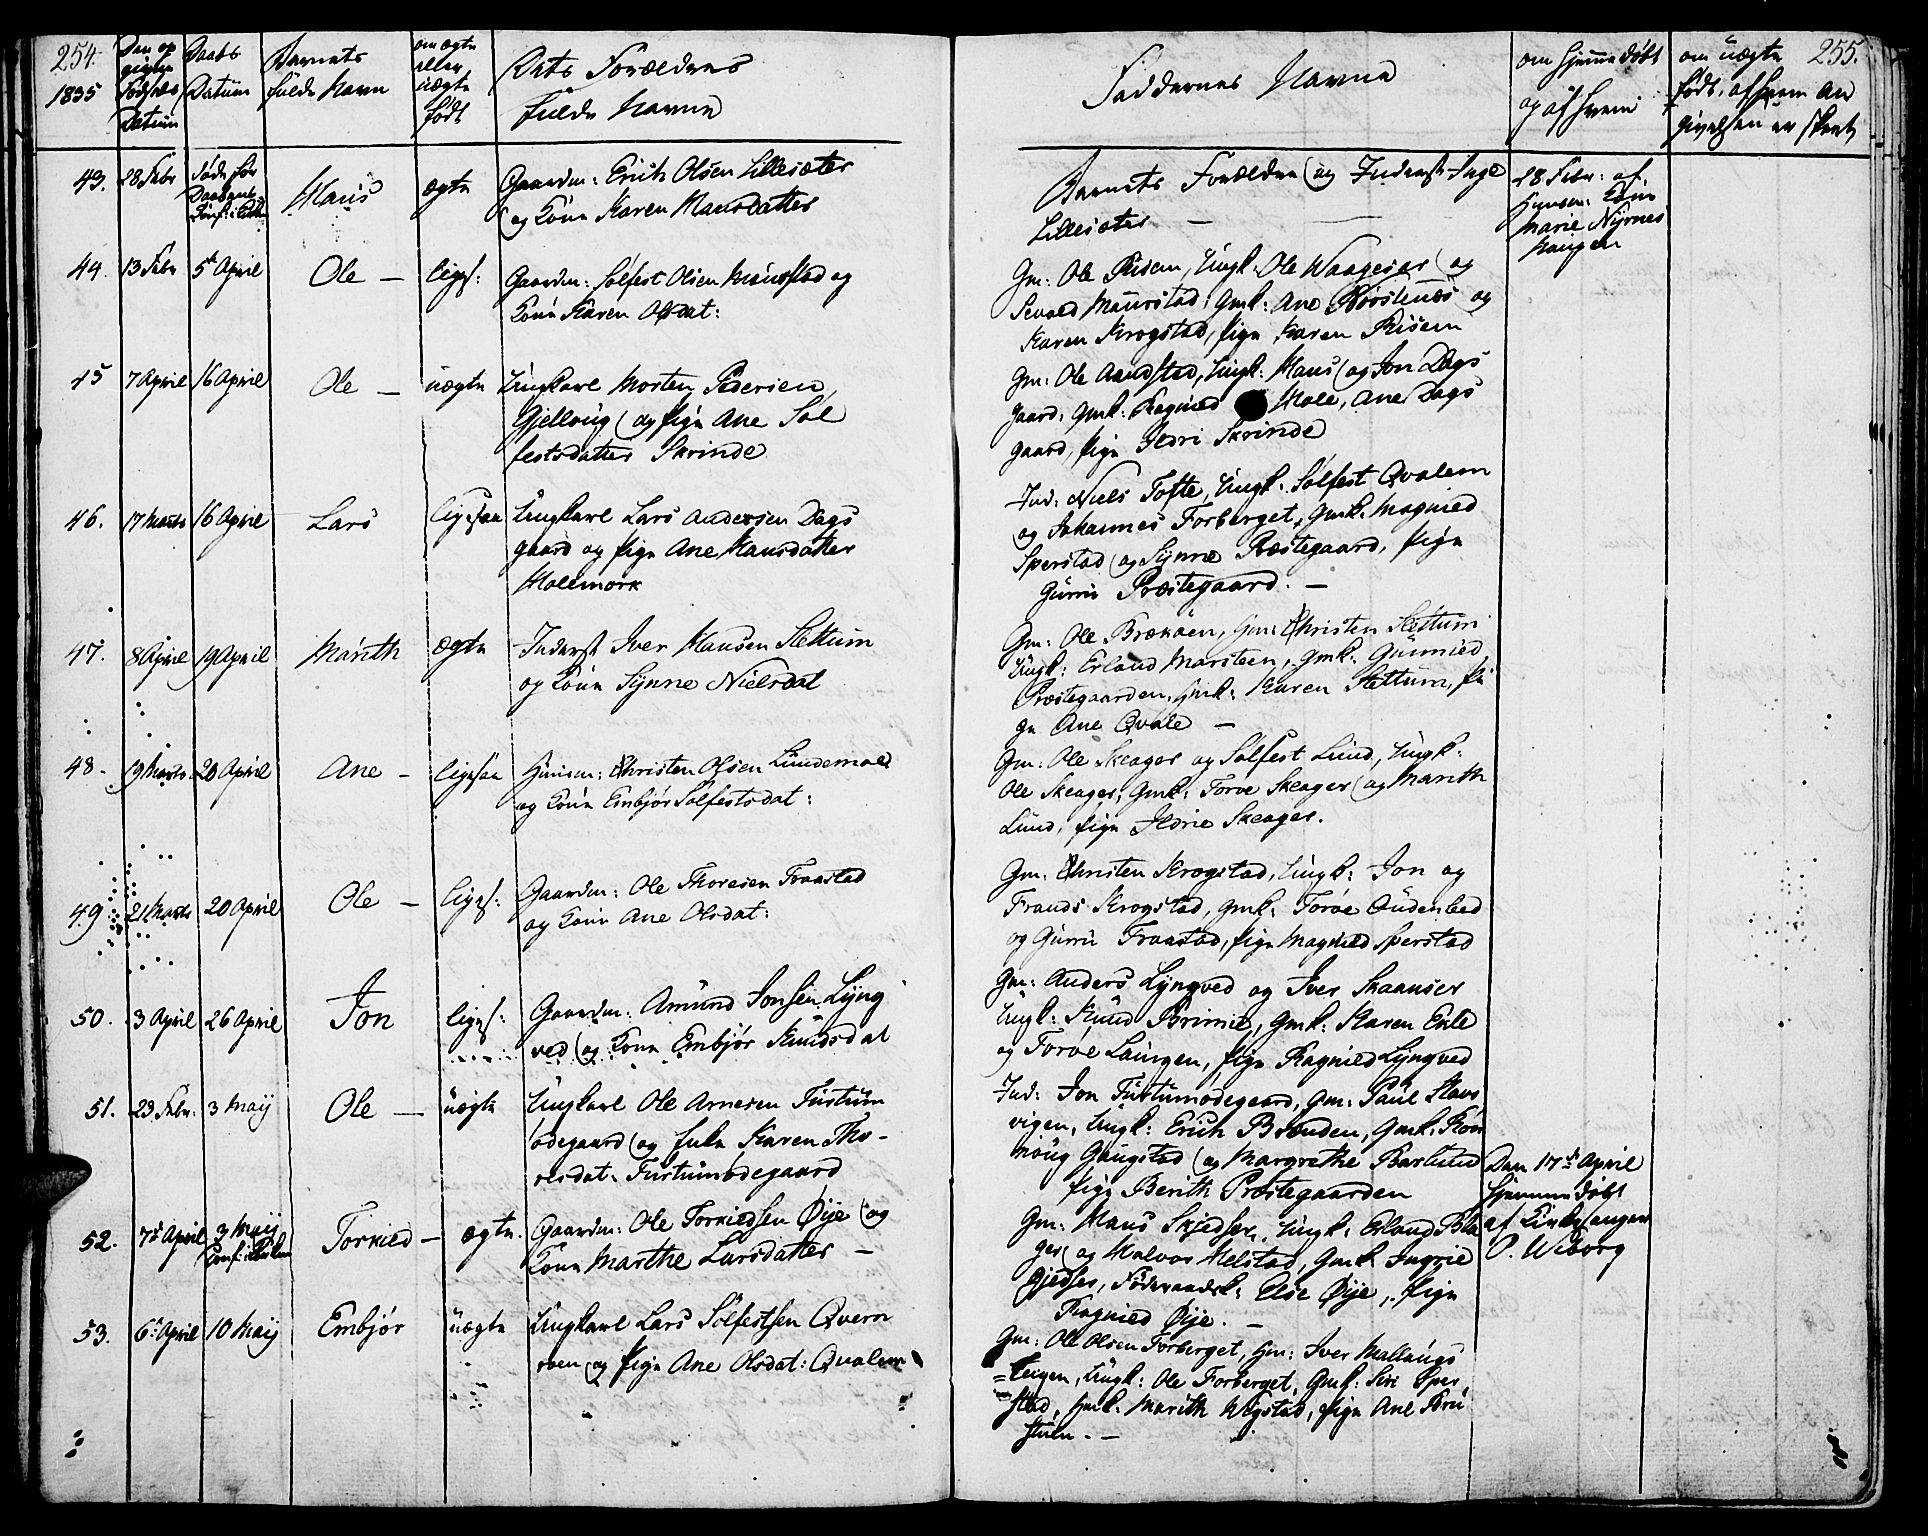 254.
1835
Den op
givne
Fødsels
Datum
Daabs
Datum
Barnets
fulde Navn
om ægte
eller
uægte
født
Dets Forældres
fulde Navne
Faddernes Navne
om hjemmedøbt
og af hvem
om uægte
født, af hvem An
givelsen er skeet
255.
43.
28 Febr
døde før
Daabens
Conf: i Kirken
Hans
ægte
Gaardm: Erich Olsen Lillesæter
og Kone Karen Hansdatter
Barnets Forældre og Inderst Inge
Lillesæter —
28 Febr: af
Huusm: Kone
Marie Nyrnes
haugen
44.
13 Febr
5te April
Ole —
liges:
Gaardm: Solfest Olsen Maurstad og
Kone Karen Olsdat:
Gm: Ole Risem, Ungk: Ole Waageses og
Sevald Maurstad, Gmk: Ane Rørstenæs og
Karen Krogstad, Pige Karen Risem
45
7 April
16 April
Ole —
uægte
Ungkarl Morten Pedersen
Gjelloug og Pige Ane Sol
festsdatter Skrinde
Gm: Ole Aandstad, Ungk: Hans og Jon Dags
gaard, Gmk: Ragnild Hole, Ane Dags
gaard, Pige Ildri Skrinde
46.
17 Marts
16 April
Lars
ligesaa
Ungkarl Lars Andersen Dags
gaard og Pige Ane Hansdatter
Holemork
Ind: Niels Tofte, Ungk: Solfest Qvalem
og Johannes Forberget, Gmk: Magnild
Sperstad og Synne Præstegaard, Pige
Gurru Præstegaard. —
47.
8 April
19 April
Marith
ægte
Inderst Iver Hansen Slettum
og Kone Synne Nielsdat
Gm: Ole Brækøen, Gm: Christen Slettum
Ungk: Erland Marsteen, Gmk: Gunnild
Præstegaarden, Gmk: Karen Slettum, Pi
ge Ane Qvale —
48.
19 Marts
20 April
Ane —
ligesaa
Huusm: Christen Olsen Lundemoe
og Kone Embjør Solfestsdat:
Gm: Ole Skeager og Solfest Lund, Ungk:
Ole Skeager, Gmk: Torve Skeager og Marith
Lund, Pige Ildrie Skeager.
49
21 Marts
20 April
Ole —
liges:
Gaardm: Ole Thoresen Fraastad
og Kone Ane Olsdat:
Gm: Christen Krogstad, Ungk: Jon og
Frands Krogstad, Gmk: Torve
og Gurru Fraastad, Pige Magnild Sperstad
50.
3 April
26 April
Jon
liges:
Gaardm: Amund Jonsen Lyng
ved og Kone Embjør Knudsdat
Gm: Anders Lyngved og Iver Skaanser
Ungk: Knud Brimie, Gmk: Karen Enle
og Torve Laurgen, Pige Ragnild Lyngved
51.
23 Febr:
3 Maij
Ole —
uægte
Ungkarl Ole Arnesen Turtum
ødegaard og Enke Karen Tho-
resdat: Turtumødegaard
Ind: Jon Turtumødegaard, Gm: Paul Havs
vigen, Ungk: Erich Brænden, Gmk: Røn
nøug Gaugstad og Margrethe Bartum
Pige Berith Præstegaarden
52.
7de April
3 Maij
Conf: i Kirken
Torkild —
ægte
Gaardm: Ole Torkildsen Øije og
Kone Marthe Larsdatter —
Gm: Hans Skjedser, Ungk: Erland Bla
ger og Halvor Melstad, Gmk: Ingrie
Gjedser, Føderaadsk: Else Øije, Pige
Ragnild Øije. —
Den 17de April
hjemmedøbt
af Kirkesanger
P. Wiborg
53.
6te April
10 Maij
Embjør
uægte
Ungkarl Lars Solfestsen Qvern
roen og Pige Ane Olsdat: Qvalem
Gm: Ole Olsen Forberget, Hm: Iver Mallaugs
=teigen, Ungk: Ole Forberget, Gmk: Siri Sper
stad, Hmk: Marith Wigstad, Pige Ane Bru
stuen. —